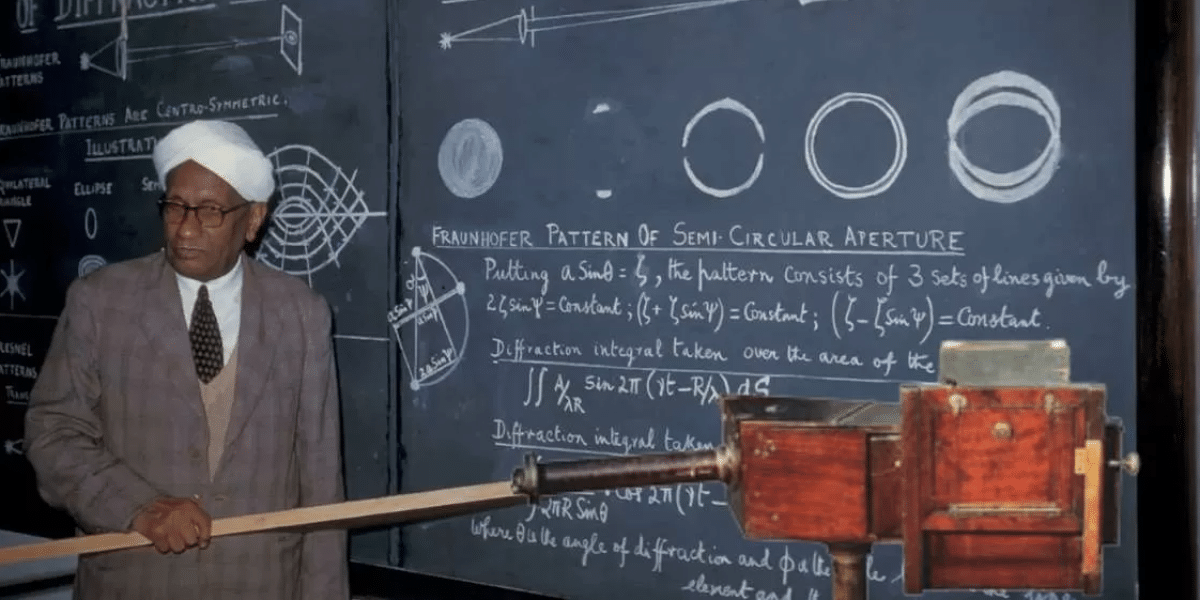 OF DIFFRACTION
FRAUNHOFER
PATTERNS
FRAUNHOFER PATTERNS ARE CENTRO-SYMMETRIC.
ELLIPSE
FRAUNHOFER PATTERN OF SEMI-CIRCULAR APERTURE
Putting a Sinθ = ζ, the pattern consists of 3 sets of lines given by
2ζ sin Ψ = Constant ; (ζ + ζ sin Ψ) = Constant ; (ζ − ζ Sin Ψ) = Constant.
Diffraction integral taken over the area of the
∫∫ A/λR Sin 2π (γt − R/λ) dS
Diffraction integral taken
2πR Sinθ · Cos 2π(γt −
where θ is the angle of diffraction and φ is the
element and